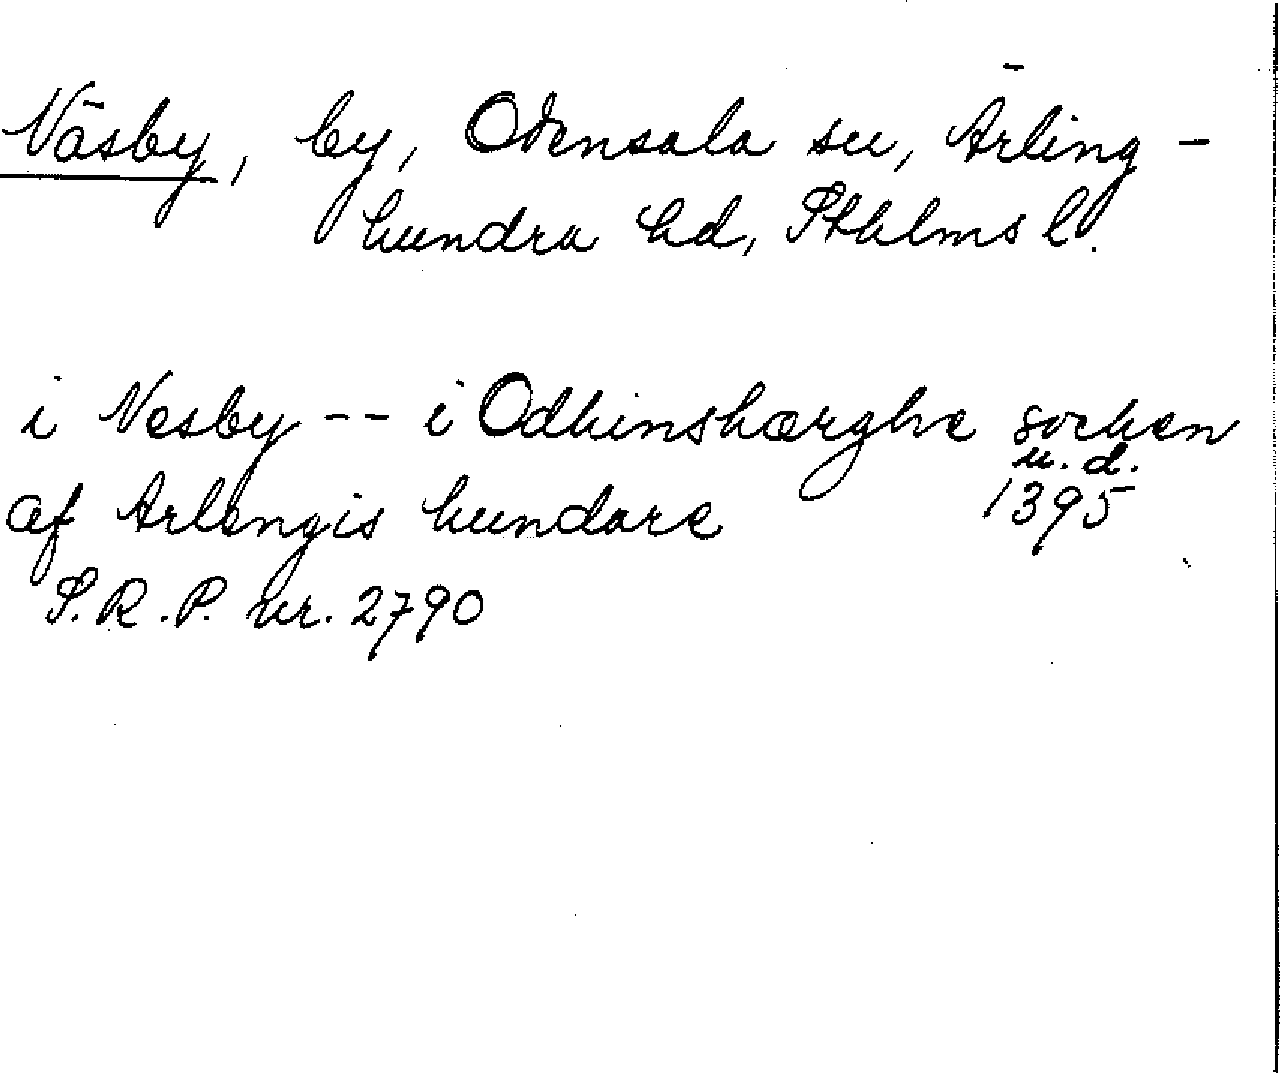 Väsby, by, Odensala sn, Ärling-
hundra hd, Sthlms l.
i Vesby -- i Odhinshærghe sochen
af Ærlengis hundare u.d. 1395
S.R.P. nr. 2790